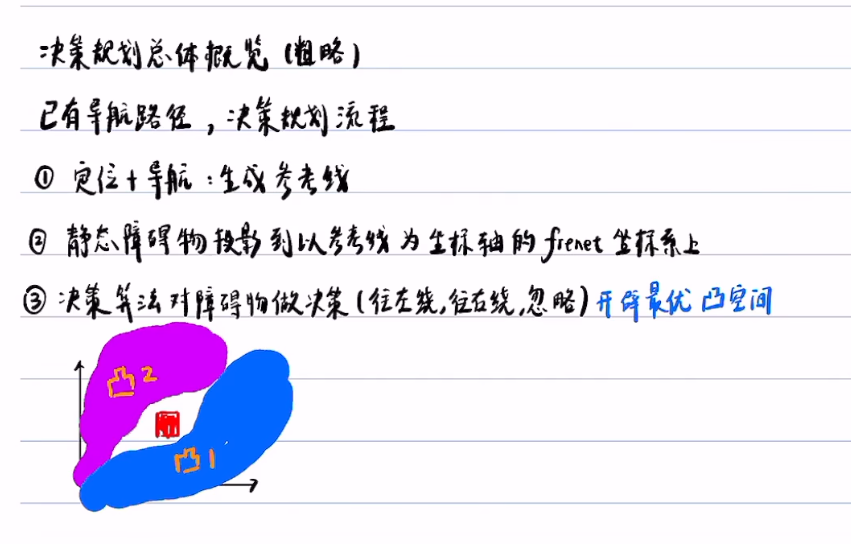 决策规划总体概览（粗略）
已有导航路径，决策规划流程
① 定位+导航：生成参考线
② 静态障碍物投影到以参考线为坐标轴的frenet坐标系上
③ 决策算法对障碍物做决策（往左绕,往右绕,忽略）开辟最优凸空间
凸2
凸1